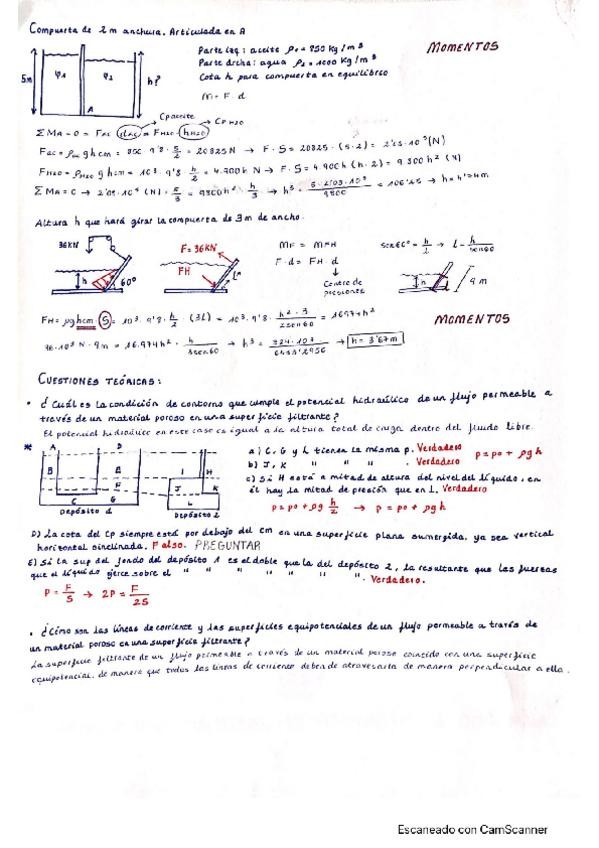 Compuerta de 2m anchura. Articulada en A
Parte izq: aceite ρ1 = 850 Kg/m³
Parte drcha: agua ρ2 = 1000 Kg/m³
Cota h para compuerta en equilibrio
M = F · d
MOMENTOS
5m
φ1
φ2
h?
A
Cp aceite
Cp H2O
ΣMA = 0 = FAC · dAC = FH2O · hH2O
FAC = ρAC g hcm = 850 · 9'8 · 5/2 = 20825 N → F · S = 20825 · (5·2) = 2'08·10⁵ (N)
FH2O = ρH2O g hcm = 10³ · 9'8 · h/2 = 4.900h N → F · S = 4.900h (h·2) = 9800h² (N)
Altura h que hará girar la compuerta de 3m de ancho.
36KN
h
60º
F = 36KN
FH
L
MF = MFH
F · d = FH · d
Centro de presiones
sen60º = h/L → L = h/sen60
h
4m
FH = ρghcm · S = 10³ · 9'8 · h/2 · (3L) = 10³ · 9'8 · h² · 3 / 2sen60 = 16974h²
MOMENTOS
→ h = 3'67m
CUESTIONES TEÓRICAS:
• ¿Cuál es la condición de contorno que cumple el potencial hidráulico de un flujo permeable a
través de un material poroso en una superficie filtrante?
El potencial hidráulico en este caso es igual a la altura total de carga dentro del fluido libre.
*
A
D
B
B
F
C
G
Depósito 1
I
H
J
K
L
Depósito 2
a) C, G y L tienen la misma p. Verdadero
p = po + ρgh
b) J, K " " " . Verdadero
c) Si H está a mitad de altura del nivel del líquido, en
él hay la mitad de presión que en L. Verdadero
p = po + ρg h/2 → p = po + ρgh
D) La cota del Cp siempre está por debajo del cm en una superficie plana sumergida, ya sea vertical
horizontal o inclinada. Falso. PREGUNTAR
E) Si la sup del fondo del depósito 1 es el doble que la del depósito 2, la resultante que las fuerzas
que el líquido ejerce sobre el " " " " " " " . Verdadero.
P = F/S → 2P = F/2S
• ¿Cómo son las líneas de corriente y las superficies equipotenciales de un flujo permeable a través de
un material poroso en una superficie filtrante?
La superficie filtrante de un flujo permeable a través de un material poroso coincide con una superficie
equipotencial, de manera que todas las líneas de corriente deben de atravesarla de manera perpendicular a ella.
Escaneado con CamScanner